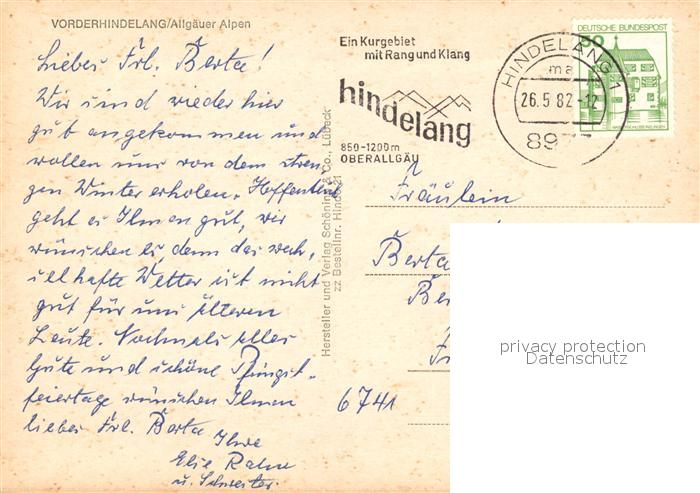 VORDERHINDELANG/Allgäuer Alpen
Liebes Frl. Berta!
Wir sind wieder hier
gut angekommen und
wollen uns von dem stren,
gen Winter erholen. Hoffentlich
geht es Ihnen gut, wir
wünschen es, denn das wech,
selhafte Wetter ist nicht
gut für uns älteren
Leute. Nochmals alles
Gute und schöne Pfingst-
feiertage wünschen Ihnen
liebes Frl. Berta Ihre
Elie Rahn
u. Schwester.
Hersteller und Verlag Schöning & Co., Lübeck
zz Bestellnr. Hind
Ein Kurgebiet
mit Rang und Klang
hindelang
850-1200m
OBERALLGÄU
HINDELANG 1
ma
26.5.82-12
89
DEUTSCHE BUNDESPOST
50
Fräulein
Berta
6741
privacy protection
Datenschutz